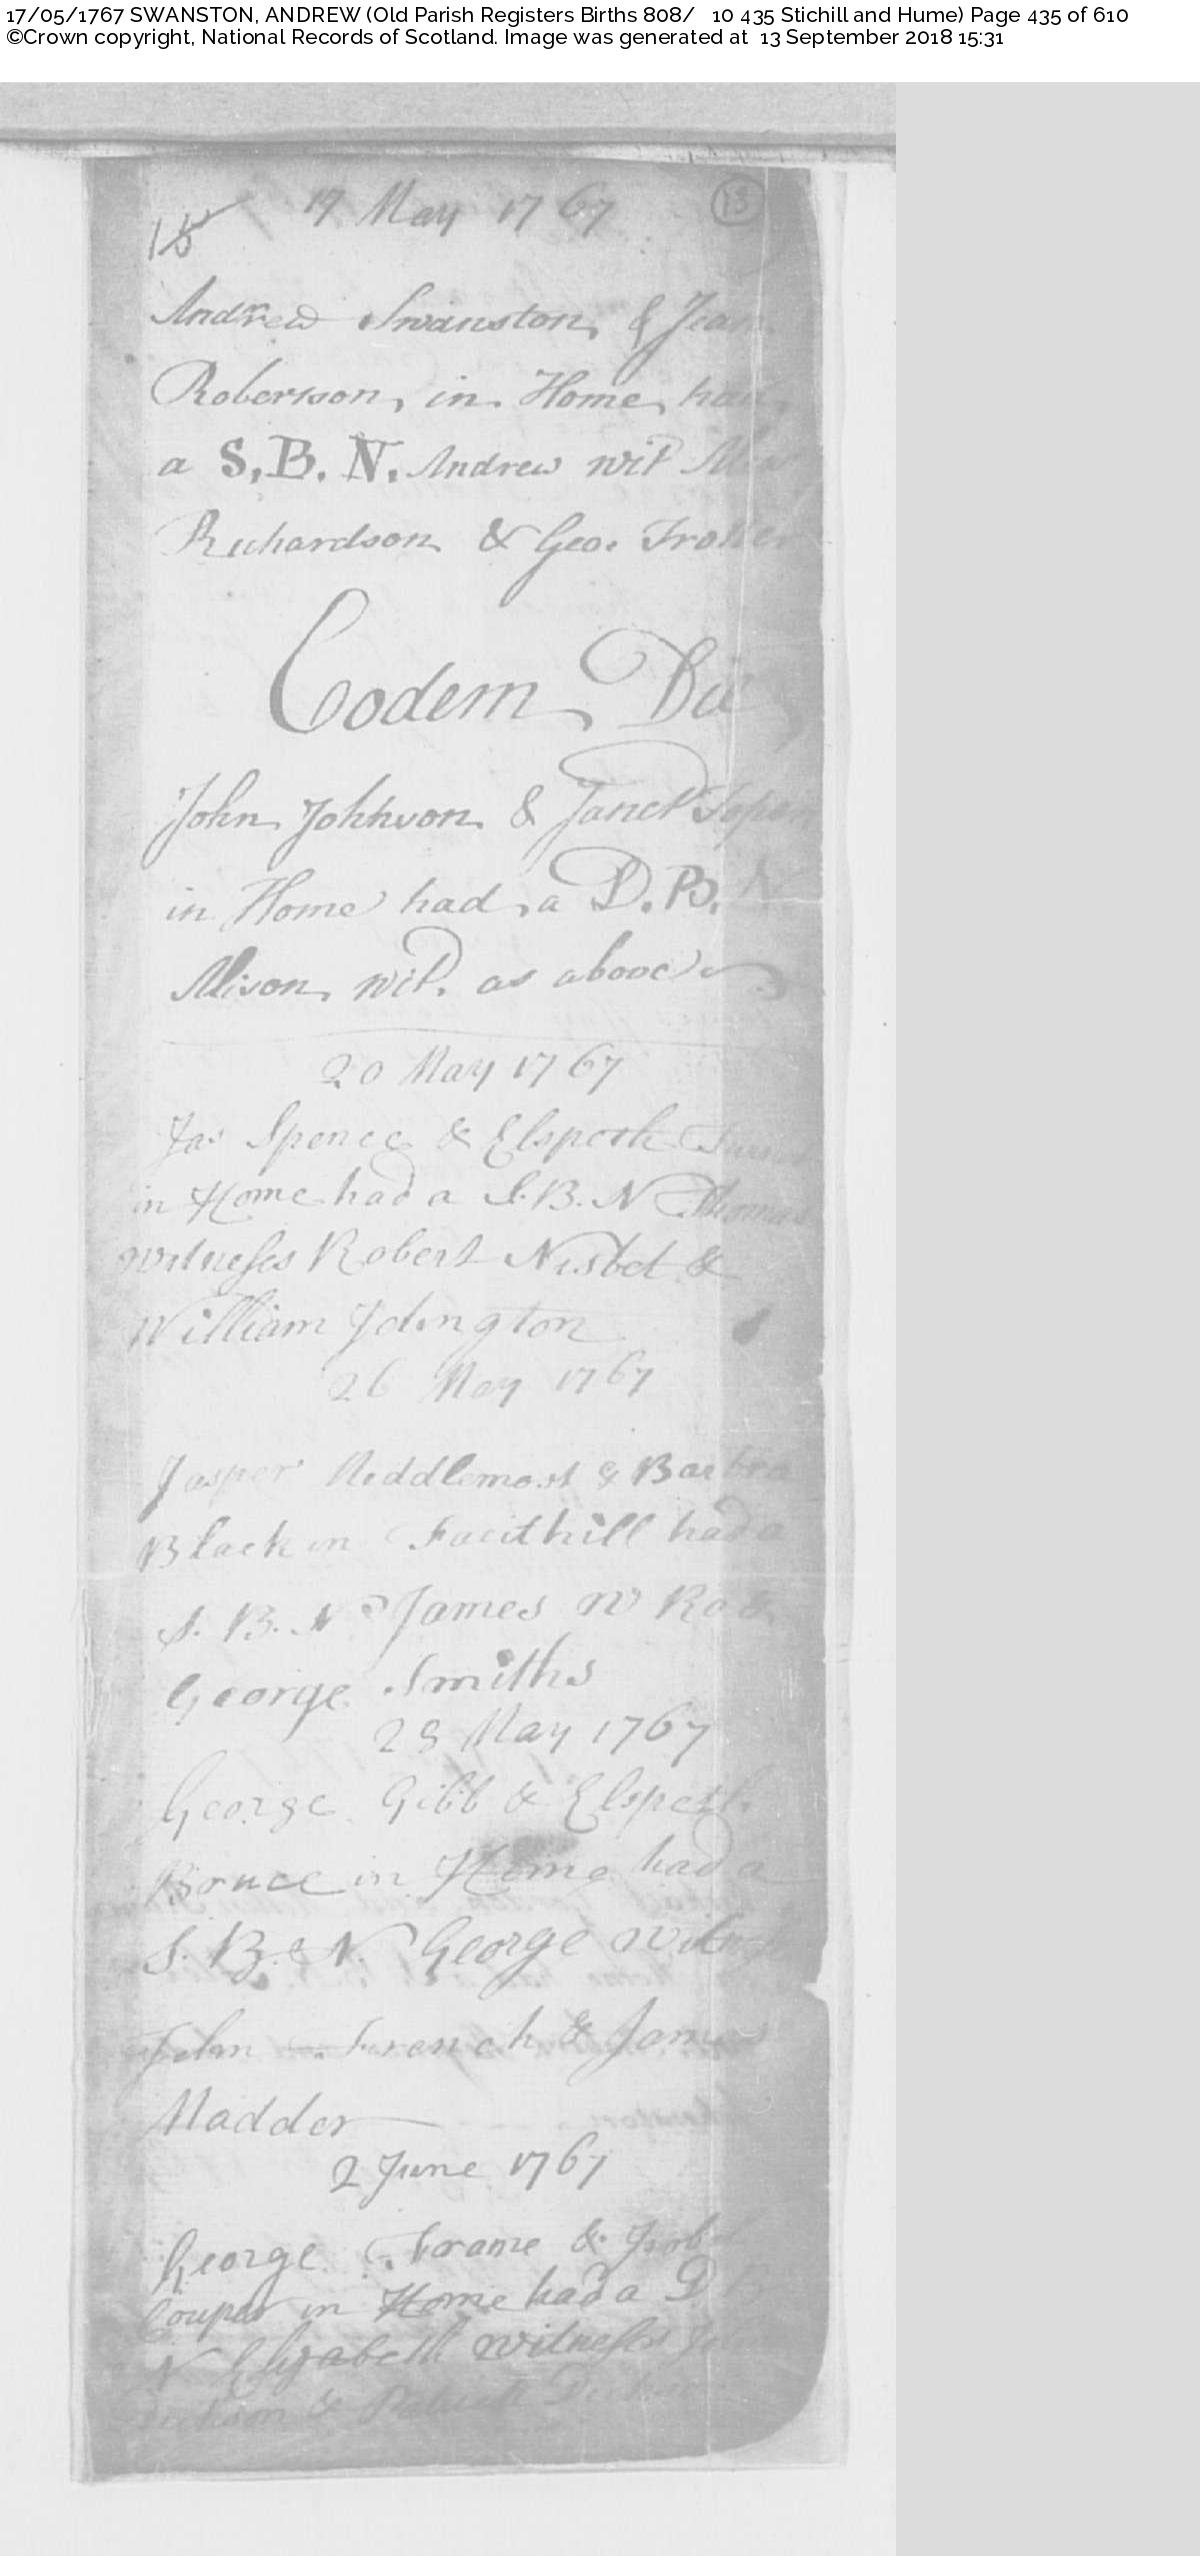 17/05/1767 SWANSTON, ANDREW (Old Parish Registers Births 808/ 10 435 Stichill and Hume) Page 435 of 610
©Crown copyright, National Records of Scotland. Image was generated at 13 September 2018 15:31
17 May 1767 13
15
Andrew Swanston & Jean
Robertson, in Home had
a S. B. N. Andrew wit
Richardson & Geo. Trotter
Eodem Die
John Johnson & Janet
in Home had a D. B. N
Alison wit. as above
20 May 1767
Jas Spence & Elspeth
in Home had a S. B. N Thomas
witnesses Robert Nisbet &
William Idington
26 May 1767
Jasper Riddlemost & Barbra
Black in Fauithill had a
S. B. N James W Rob &
George Smiths
28 May 1767
George Gibb & Elspeth
Bruce in Home had a
S. B. N. George Witness
John French & James
Madder
2 June 1767
George Frame & Isobel
Couper in Home had a D B
N Elizabeth witnesses John
& Patrick